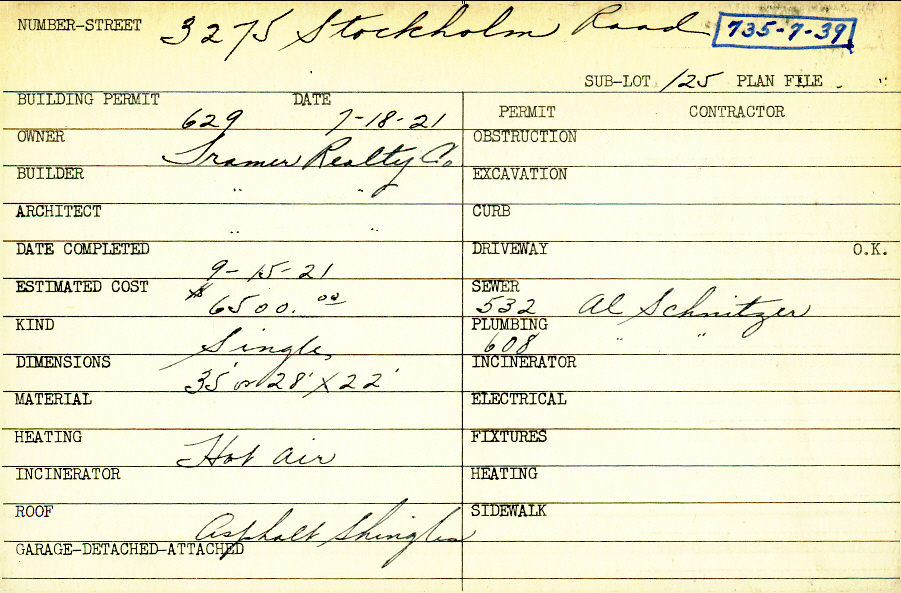 NUMBER-STREET 3275 Stockholm Road 735-7-39
SUB-LOT 125 PLAN FILE
BUILDING PERMIT 629 DATE 7-18-21
PERMIT CONTRACTOR
OWNER Tramer Realty Co.
OBSTRUCTION
BUILDER " "
EXCAVATION
ARCHITECT " "
CURB
DATE COMPLETED 9-15-21
DRIVEWAY O.K.
ESTIMATED COST $6500.00
SEWER 532 Al Schnitzer
KIND Single
PLUMBING 608 " "
DIMENSIONS 35' or 28' X 22'
INCINERATOR
MATERIAL
ELECTRICAL
HEATING Hot air
FIXTURES
INCINERATOR
HEATING
ROOF Asphalt Shingles
SIDEWALK
GARAGE-DETACHED-ATTACHED